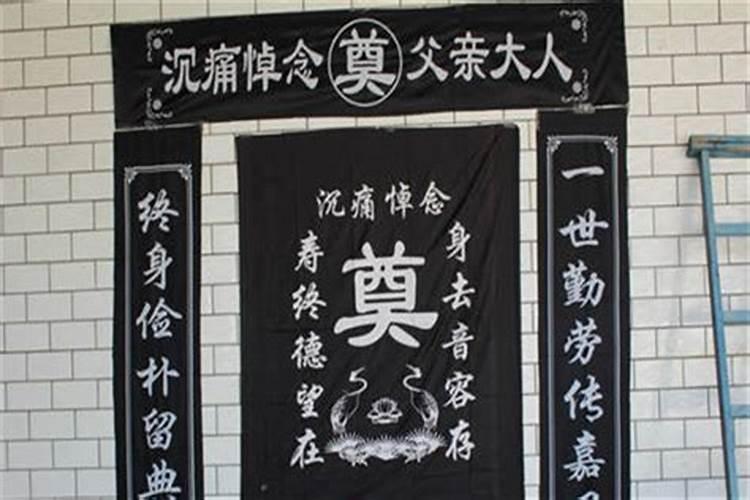 沉痛悼念奠父亲大人
一世勤劳传嘉
终身俭朴留典
沉痛悼念
身去音容存
奠
寿终德望在